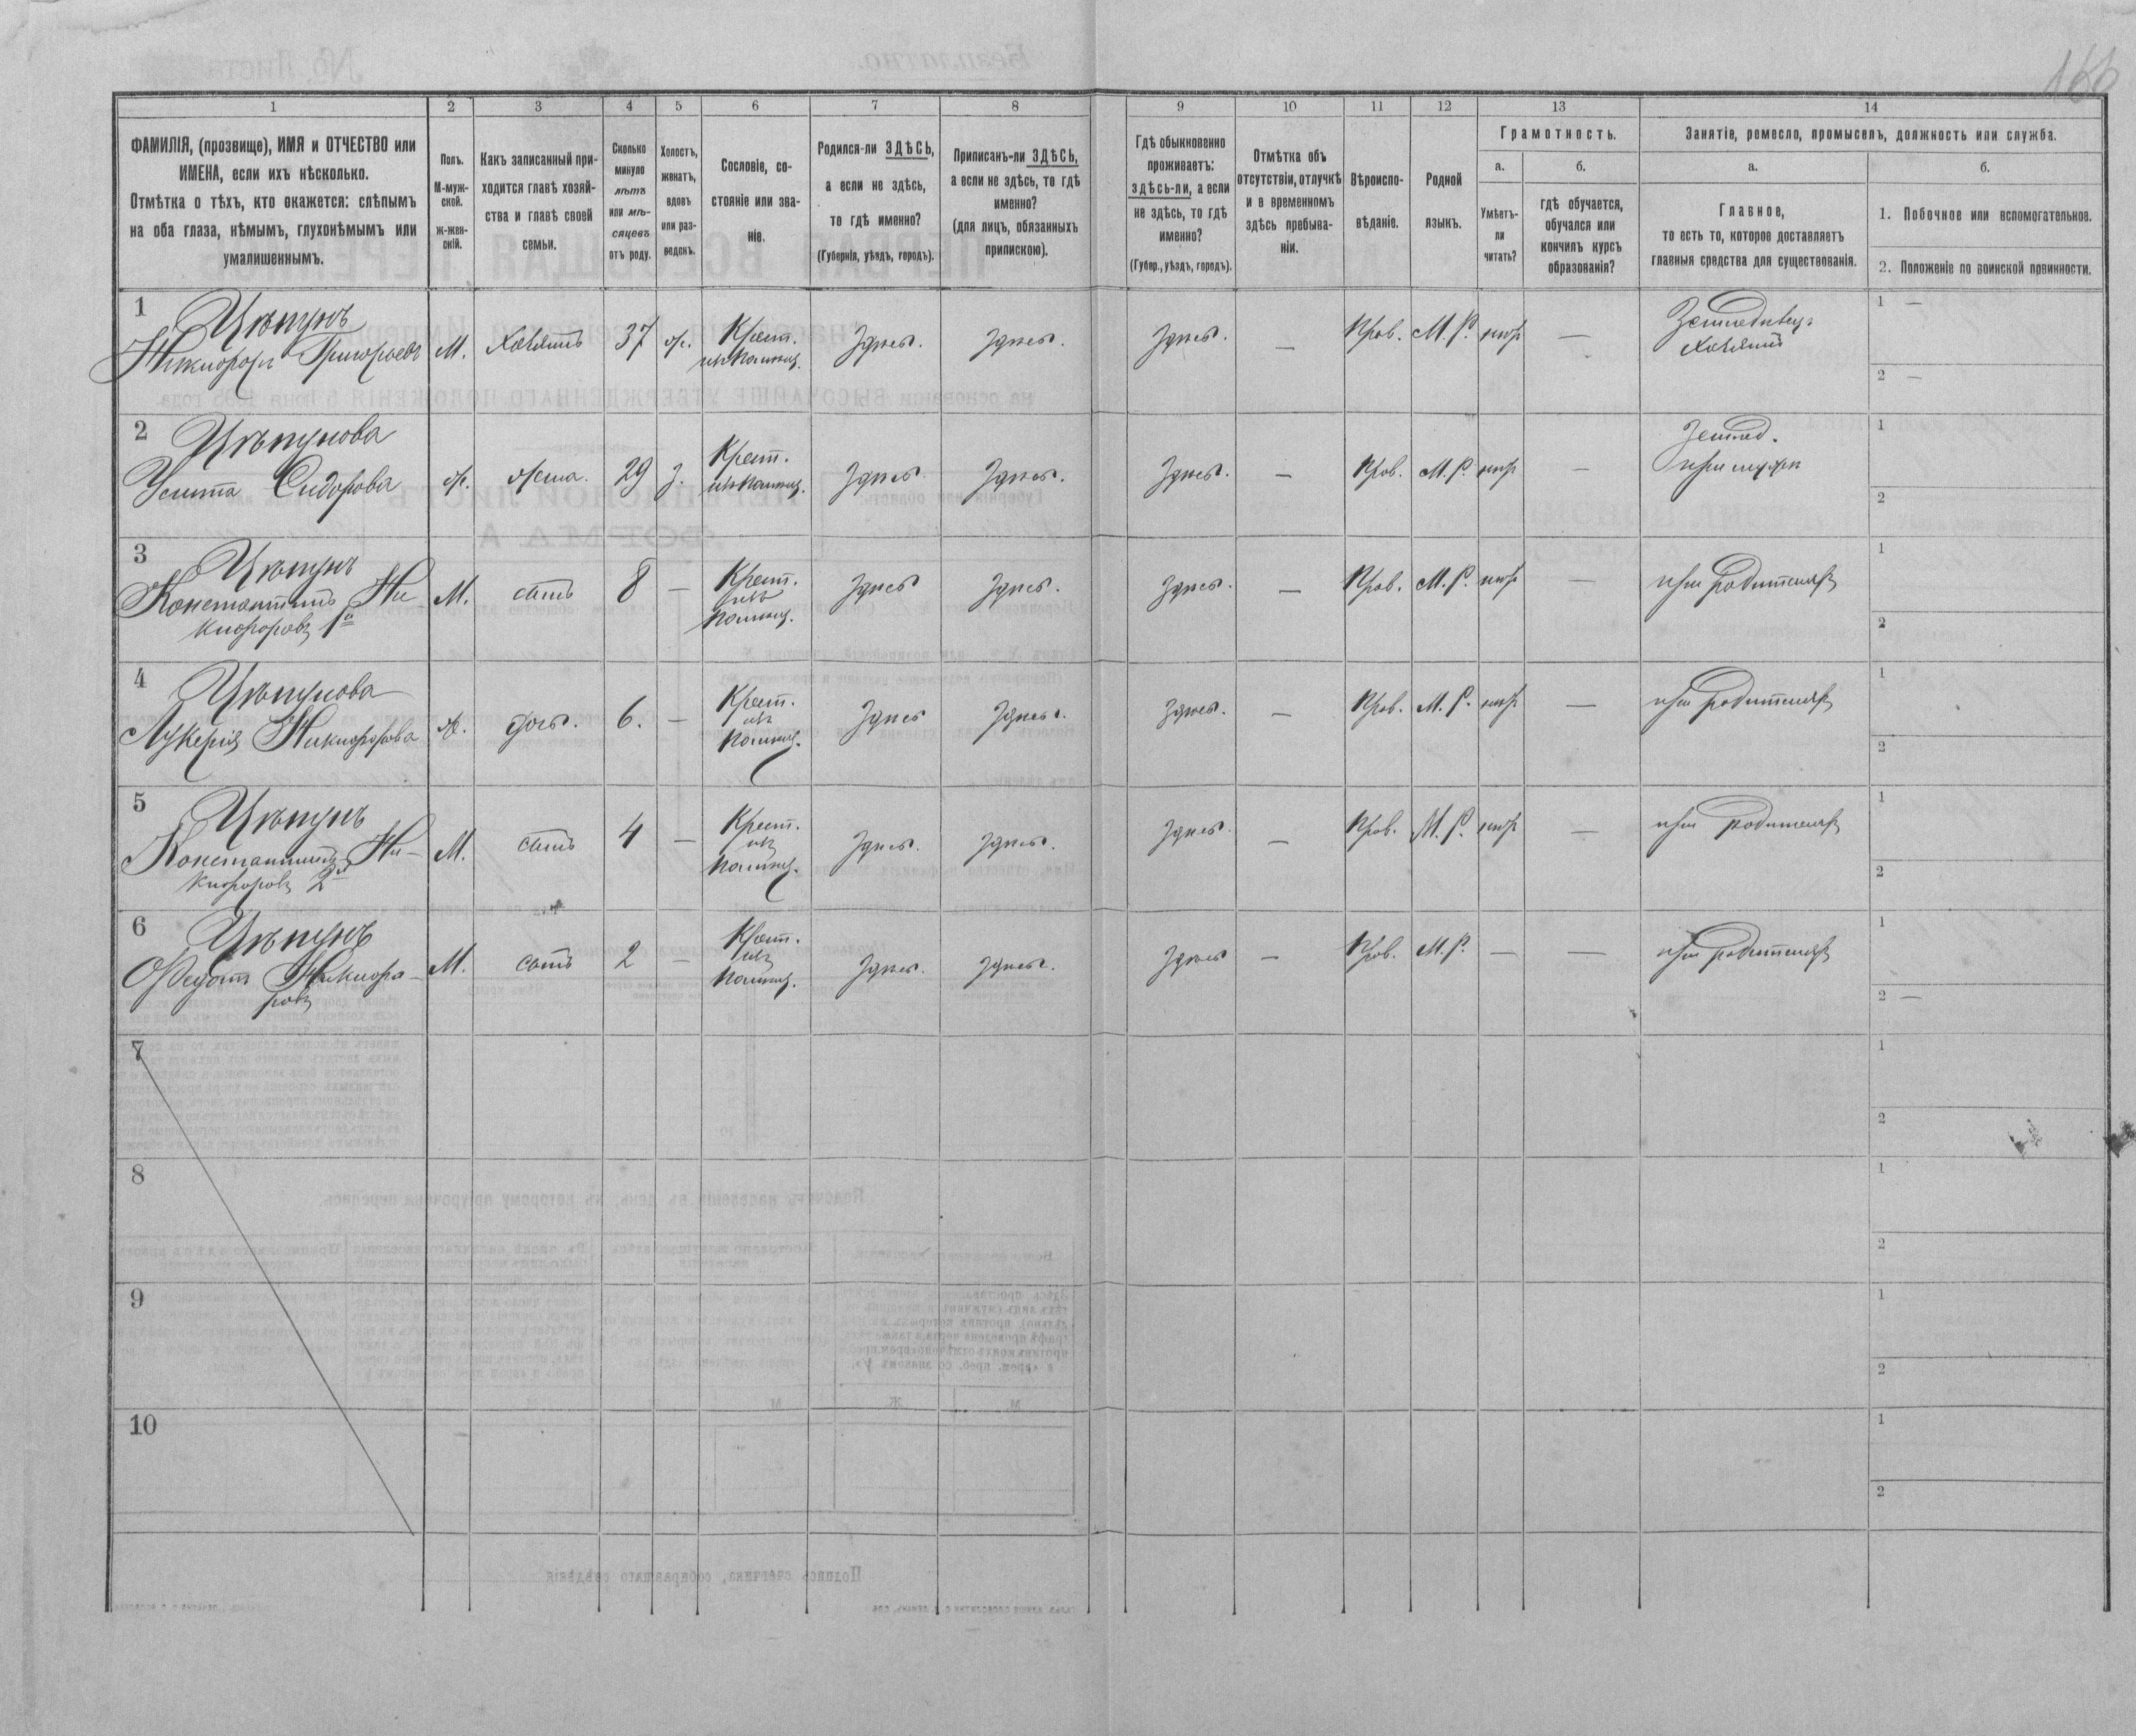 166
1
2
3
4
5
6
7
8
9
10
11
12
13
14
ФАМИЛІЯ, (прозвище), ИМЯ и ОТЧЕСТВО или
ИМЕНА, если ихъ нѣсколько.
Отмѣтка о тѣхъ, кто окажется: слѣпымъ
на оба глаза, нѣмымъ, глухонѣмымъ или
умалишеннымъ.
Полъ.
М-муж-
ской.
ж-жен-
скій.
Какъ записанный при-
ходится главѣ хозяй-
ства и главѣ своей
семьи.
Сколько
минуло
лѣтъ
или мѣ-
сяцевъ
отъ роду.
Холостъ,
женатъ,
вдовъ
или раз-
веденъ.
Сословіе, со-
стояніе или зва-
ніе.
Родился-ли ЗДѢСЬ,
а если не здѣсь,
то гдѣ именно?
(Губернія, уѣздъ, городъ).
Приписанъ-ли ЗДѢСЬ,
а если не здѣсь, то гдѣ
именно?
(для лицъ, обязанныхъ
припискою).
Гдѣ обыкновенно
проживаетъ:
здѣсь-ли, а если
не здѣсь, то гдѣ
именно?
(Губер., уѣздъ, городъ).
Отмѣтка объ
отсутствіи, отлучкѣ
и о временномъ
здѣсь пребыва-
ніи.
Вѣроиспо-
вѣданіе.
Родной
языкъ.
Грамотность.
а.
Умѣетъ-
ли
читать?
б.
гдѣ обучается,
обучался или
кончилъ курсъ
образованія?
Занятіе, ремесло, промыселъ, должность или служба.
а.
Главное,
то есть то, которое доставляетъ
главныя средства для существованія.
б.
1. Побочное или вспомогательное.
2. Положеніе по воинской повинности.
1
Цѣпунъ
Никифоръ Григорьевъ
М. Хозяинъ 37 ж. Крест. Здѣсь. Здѣсь. Здѣсь. — Прав. М. Р. — Земледѣлецъ
Хозяинъ
1 —
2 —
2
Цѣпунова
Сидорова
ж. жена. 29 з. Крест. Здѣсь. Здѣсь. Здѣсь. — Прав. М. Р. — Землед.
при мужѣ
1
2
3
Цѣпунъ
Константинъ Ни-
кифоровъ 1й
М. сынъ 8 — Крест.
изъ
Здѣсь Здѣсь. Здѣсь. — Прав. М. Р. — при родителяхъ
1
2
4
Цѣпунова
Лукерія Никифорова
ж. дочь. 6. — Крест.
изъ
Здѣсь Здѣсь. Здѣсь. — Прав. М. Р. — при родителяхъ
1
2
5
Цѣпунъ
Константинъ Ни-
кифоровъ 2й
М. сынъ 4 — Крест.
изъ
Здѣсь. Здѣсь. Здѣсь. — Прав. М. Р. — при родителяхъ
1
2
6
Цѣпунъ
Федотъ Никифо-
ровъ
М. сынъ 2 — Крест.
изъ
Здѣсь. Здѣсь. Здѣсь — Прав. М. Р. — — при родителяхъ
1
2 —
7
1
2
8
1
2
9
1
2
10
1
2